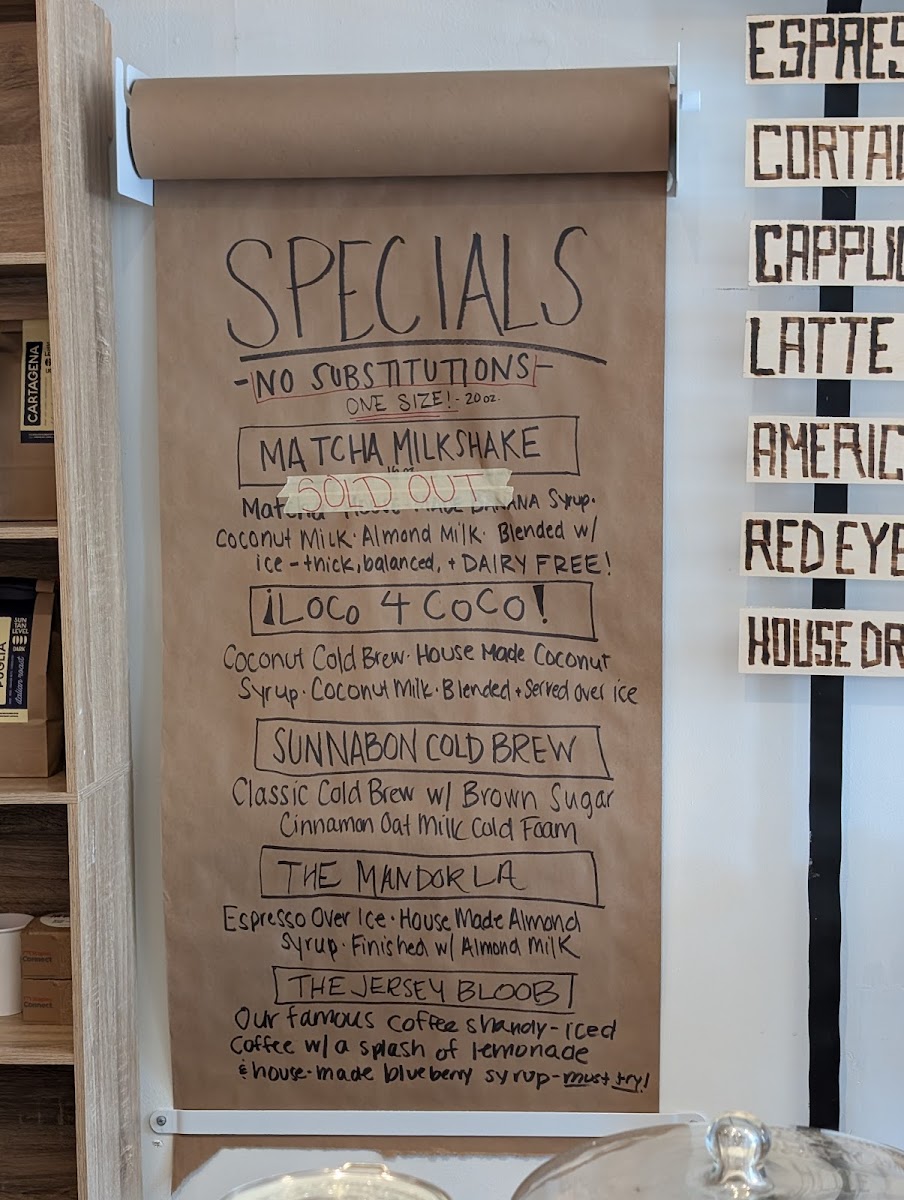 SPECIALS
-NO SUBSTITUTIONS-
ONE SIZE! - 20 oz.
MATCHA MILKSHAKE
SOLD OUT
BANANA Syrup.
Coconut Milk · Almond Milk · Blended w/
ice - thick, balanced, + DAIRY FREE!
¡LOCO 4 COCO!
Coconut Cold Brew · House Made Coconut
Syrup · Coconut Milk · Blended + Served over ice
SUNNABON COLD BREW
Classic Cold Brew w/ Brown Sugar
Cinnamon Oat Milk Cold Foam
THE MANDORLA
Espresso Over Ice · House Made Almond
Syrup · Finished w/ Almond Milk
THE JERSEY BLOOB
Our famous coffee shandy - iced
coffee w/ a splash of lemonade
& house-made blueberry syrup - must try!
ESPRES
CORTAD
CAPPUC
LATTE
AMERIC
RED EYE
HOUSE DR
CARTAGENA
PUGLIA
SUN
TAN
LEVEL
DARK
italian roast
Connect
Connect